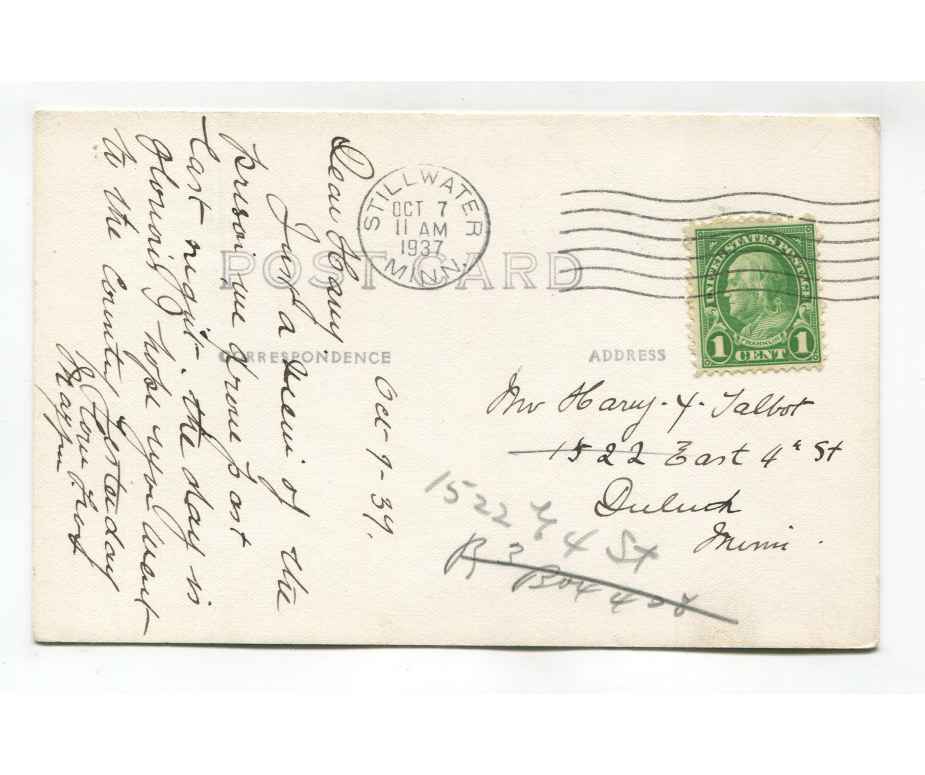 STILLWATER
OCT 7
11 AM
1937
MINN.
UNITED STATES POSTAGE
FRANKLIN
1 CENT 1
POST CARD
CORRESPONDENCE
ADDRESS
Oct-7-37.
Dear Harry.
Just a of the
prison we drove past
last night. the day is
I hope you went
to the country yesterday
Love from
Mr Harry. Talbot
1522 East 4th St
Duluth
Minn.
1522 E 4 St
R 3 Box 448